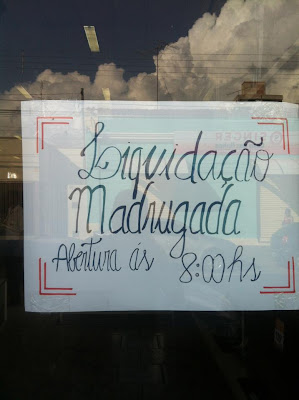 Liquidação
Madrugada
Abertura ás 8:00hs
SINGER